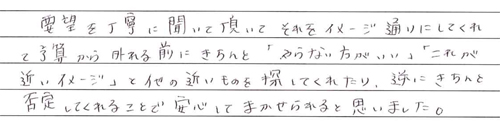 要望を丁寧に聞いて頂いてそれをイメージ通りにしてくれ
て予算から外れる前にきちんと「やらない方がいい」「これが
近いイメージ」と他の近いものを探してくれたり、逆にきちんと
否定してくれることで安心してまかせられると思いました。